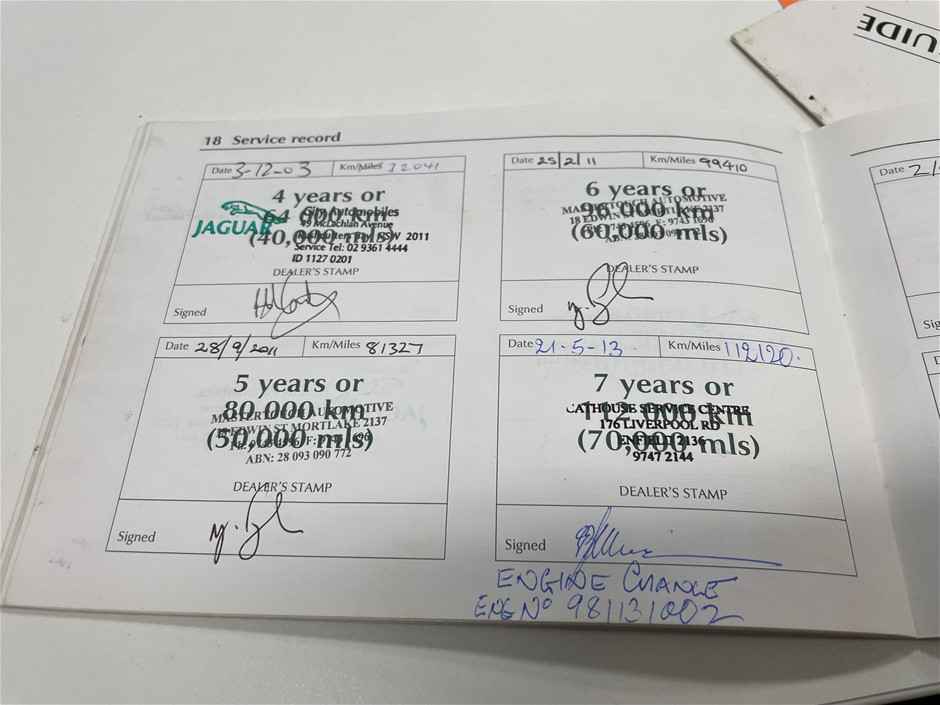 GUIDE
18 Service record
Date 3-12-03 Km/Miles 32041
4 years or
64 000 km
(40,000 mls)
JAGUAR
City Automobiles
49 McLachlan Avenue
Rushcutters Bay NSW 2011
Service Tel: 02 9361 4444
ID 1127 0201
DEALER'S STAMP
Signed
Date 25/2/11 Km/Miles 99410
6 years or
96,000 km
(60,000 mls)
MASTERTOUCH AUTOMOTIVE
18 EDWIN ST MORTLAKE 2137
DEALER'S STAMP
Signed
Date 28/9/2011 Km/Miles 81327
5 years or
80,000 km
(50,000 mls)
MASTERTOUCH AUTOMOTIVE
18 EDWIN ST MORTLAKE 2137
ABN: 28 093 090 772
DEALER'S STAMP
Signed
Date 21-5-13. Km/Miles 112120.
7 years or
112,000 km
(70,000 mls)
CATHOUSE SERVICE CENTRE
176 LIVERPOOL RD
ENFIELD 2136
9747 2144
DEALER'S STAMP
Signed
ENGINE CHANGE
ENG No 981131002
Date